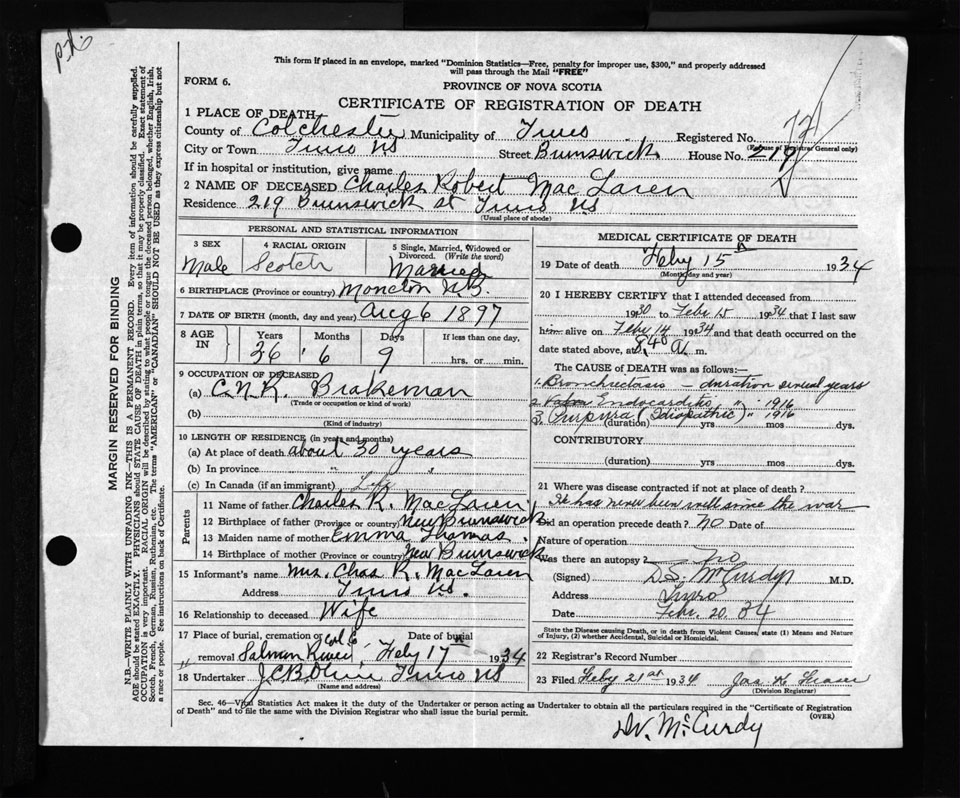 This form if placed in an envelope, marked "Dominion Statistics—Free, penalty for improper use, $300," and properly addressed
will pass through the Mail "FREE"
FORM 6.
PROVINCE OF NOVA SCOTIA
CERTIFICATE OF REGISTRATION OF DEATH
1 PLACE OF DEATH
County of Colchester Municipality of Truro Registered No.
(For use of Registrar General only)
City or Town Truro NS Street Brunswick House No. 219
If in hospital or institution, give name
2 NAME OF DECEASED Charles Robert MacLaren
Residence 219 Brunswick st Truro NS
(Usual place of abode)
PERSONAL AND STATISTICAL INFORMATION
3 SEX 4 RACIAL ORIGIN 5 Single, Married, Widowed or Divorced. (Write the word)
Male Scotch Married
6 BIRTHPLACE (Province or country) Moncton N.B.
7 DATE OF BIRTH (month, day and year) Aug 6 1897
8 AGE IN Years Months Days If less than one day,
36 6 9 hrs. or min.
9 OCCUPATION OF DECEASED
(a) C.N.R. Brakeman
(Trade or occupation or kind of work)
(b)
(Kind of industry)
10 LENGTH OF RESIDENCE (in years and months)
(a) At place of death about 30 years
(b) In province " "
(c) In Canada (if an immigrant) Life
Parents
11 Name of father Charles R. MacLaren
12 Birthplace of father (Province or country) New Brunswick
13 Maiden name of mother Emma Thomas
14 Birthplace of mother (Province or country) New Brunswick
15 Informant's name Mrs. Chas R. MacLaren
Address Truro NS.
16 Relationship to deceased Wife
17 Place of burial, cremation or Date of burial
removal Salmon River Feby 17 1934
18 Undertaker Truro NS
(Name and address)
MEDICAL CERTIFICATE OF DEATH
19 Date of death Feby 15 1934
(Month, day and year)
20 I HEREBY CERTIFY that I attended deceased from
1930 to Feby 15 1934 that I last saw
him alive on Feby 14 1934 and that death occurred on the
date stated above, at 8.40 a. m.
The CAUSE OF DEATH was as follows:—
1. Bronchiectasis — duration several years
2. Endocarditis " " 1916
3. Purpura (Idiopathic) " 1916
(duration) yrs mos dys.
CONTRIBUTORY
(duration) yrs. mos dys.
21 Where was disease contracted if not at place of death?
He has never been well since the war
Did an operation precede death? no Date of
Nature of operation
Was there an autopsy? no
(Signed) D.S. McCurdy M.D.
Address Truro
Date Febr. 20. 34
State the Disease causing Death, or in death from Violent Causes, state (1) Means and Nature of Injury, (2) whether Accidental, Suicidal or Homicidal.
22 Registrar's Record Number
23 Filed Feby 21st 1934 Jas K Fraser
(Division Registrar)
Sec. 46—Vital Statistics Act makes it the duty of the Undertaker or person acting as Undertaker to obtain all the particulars required in the "Certificate of Registration
of Death" and to file the same with the Division Registrar who shall issue the burial permit.
(OVER)
McCurdy
MARGIN RESERVED FOR BINDING
N.B.—WRITE PLAINLY WITH UNFADING INK—THIS IS A PERMANENT RECORD. Every item of information should be carefully supplied.
AGE should be stated EXACTLY. PHYSICIANS should STATE CAUSE OF DEATH in plain terms, so that it may be properly classified. Exact statement of
OCCUPATION is very important. RACIAL ORIGIN will be described by stating to what people or tongue the deceased person belonged, whether English, Irish,
Scotch, French, German, Russian, Ruthenian, etc. The terms "AMERICAN" or "CANADIAN" SHOULD NOT BE USED as they express citizenship but not
a race or people. See instructions on back of Certificate.